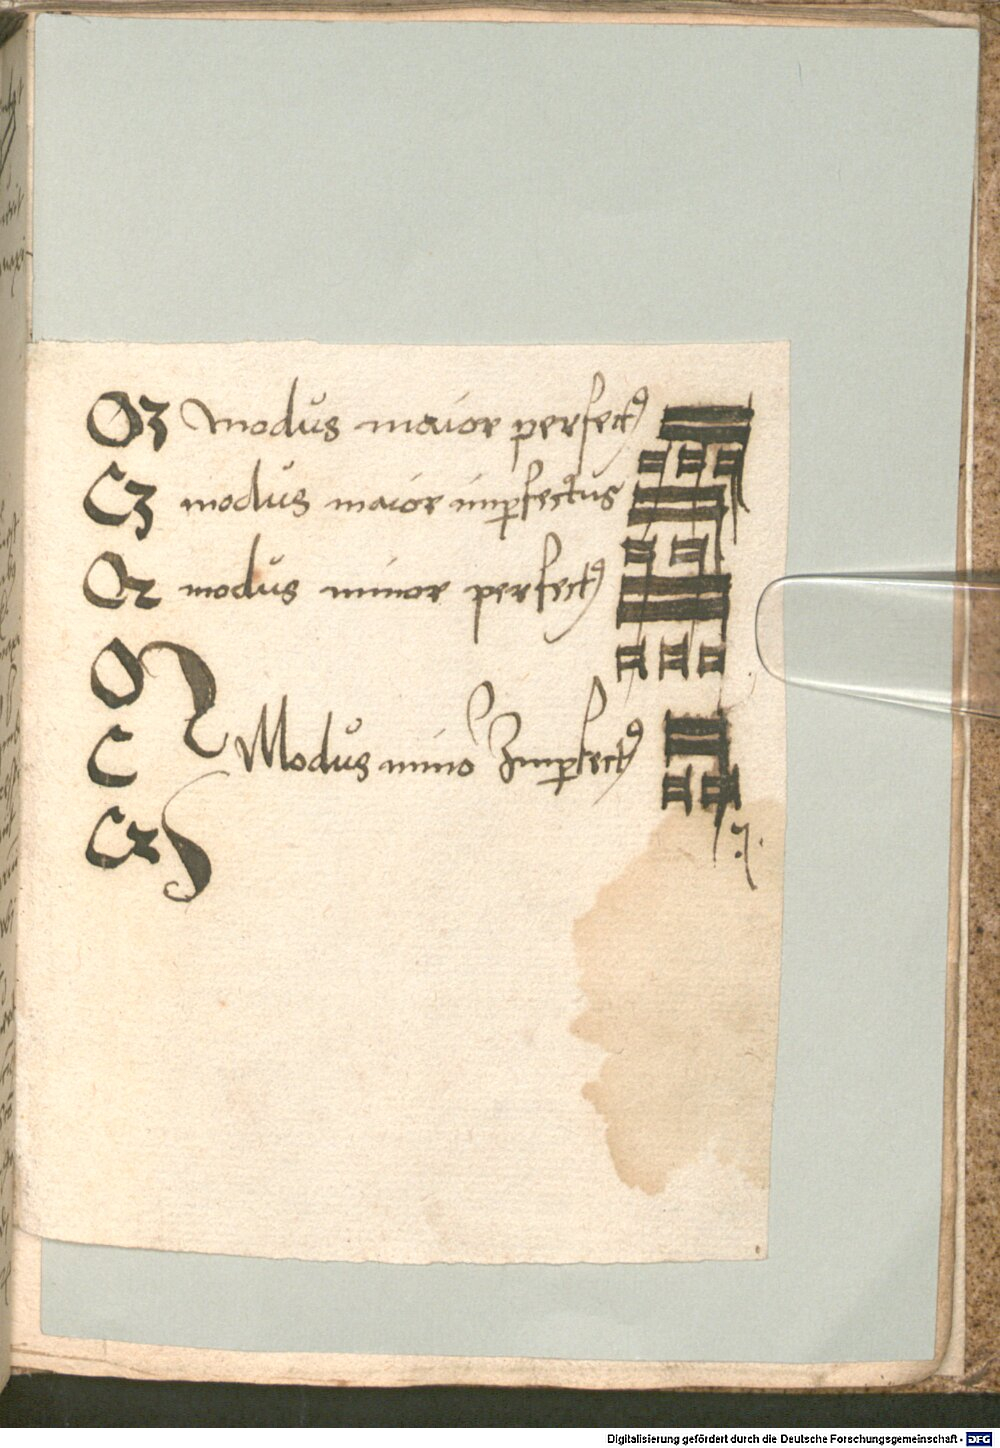 O3 modus maior perfectꝰ
C3 modus maior imꝑfectus
O2 modus minor perfectꝰ
O
C Modus mino Imꝑfectꝰ
C2
Digitalisierung gefördert durch die Deutsche Forschungsgemeinschaft - DFG